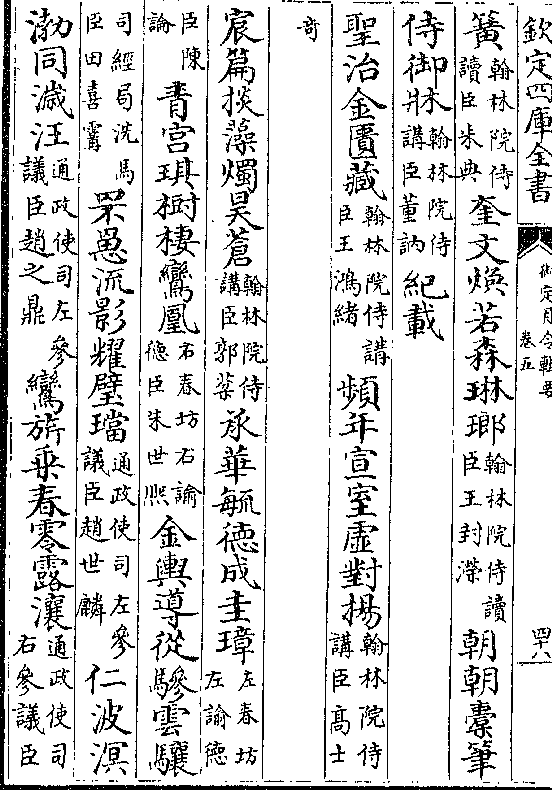 欽定四庫全書
御定月令輯要
卷五
四十八
簧翰林院侍讀臣朱典奎文煥若森琳瑯翰林院侍讀臣王封濚朝朝橐筆
侍御牀翰林院侍講臣董訥紀載
聖治金匱藏翰林院侍講臣王鴻緒頻年宣室虛對揚翰林院侍講臣高士
奇
宸篇掞藻燭昊蒼翰林院侍講臣郭棻承華毓德成圭璋左春坊左諭德
臣陳論青宮琪樹棲鸞凰右春坊右諭德臣朱世熙金輿導從驂雲驤
司經局洗馬臣田喜𩆩罘罳流影耀璧璫通政使司左參議臣趙世麟仁波溟
渤同濊汪通政使司左參議臣趙之鼎鸞旂乘春零露瀼通政使司右參議臣